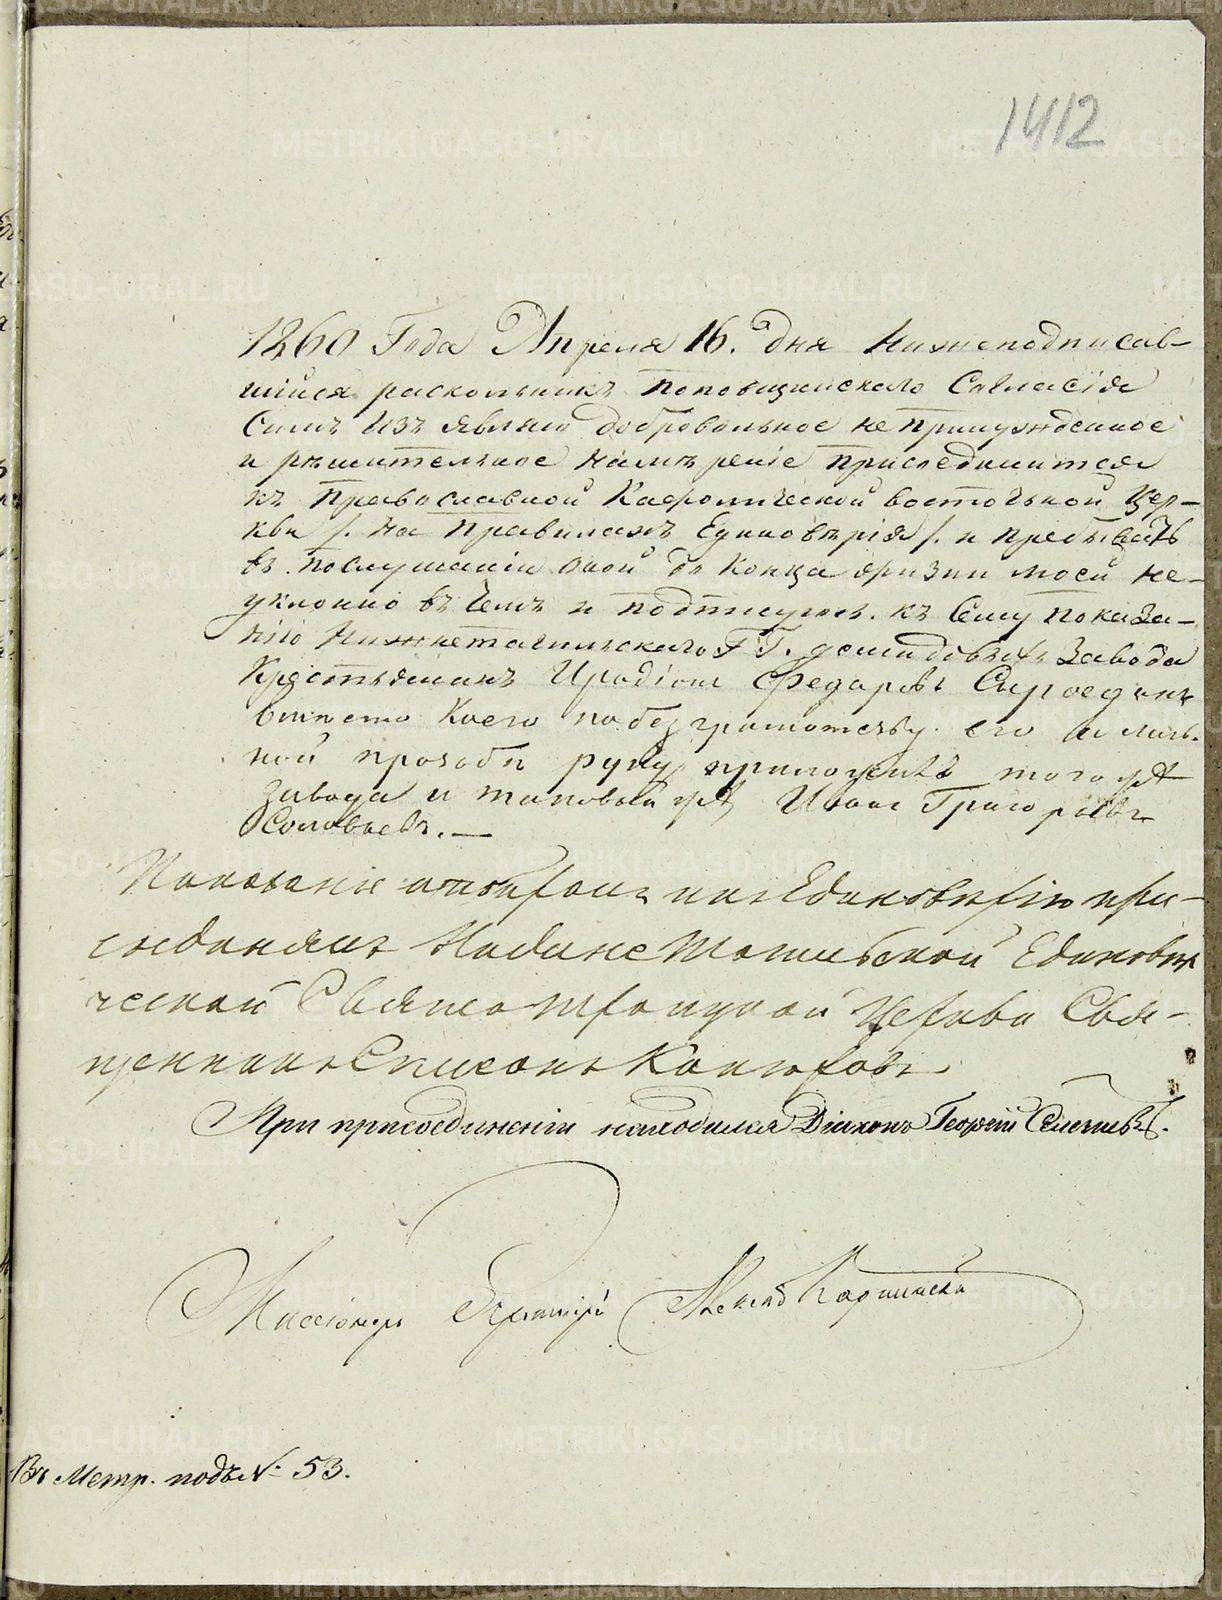 1412
1860 Года Апреля 16. дня Нижеподписав-
шійся раскольникъ поповщинскаго Согласія
Симъ изъявляю добровольное непринужденное
и рѣшительное намѣреніе присоединится
къ Православной Кафолической восточной Цер-
кви /. на правилахъ Единовѣрія /. и пребывать
въ послушаніи оной до конца жизни моей не-
уклонно въ чемъ и подпишуюсь. къ сему показа-
нію Нижнетагильскаго ГГ. демидовыхъ завода
Крестьянинъ Иродіонъ Федоровъ Сыроедин
вмѣсто коего по безграмотству его и лич-
ной прозьбѣ руку приложилъ того же
завода и таковый же Иванъ Григорьевъ
Соловьевъ. —
Показаніе отобралъ и къ Единовѣрію при-
соединялъ Нижне Тагильской Единовѣр
ческой Свято Троицкой Церкви Свя-
щенникъ
При присоединеніи находился Діаконъ Георгій
Миссіонеръ Іерей
Въ Метр. подъ № 53.
METRIKI.GASO-URAL.RU